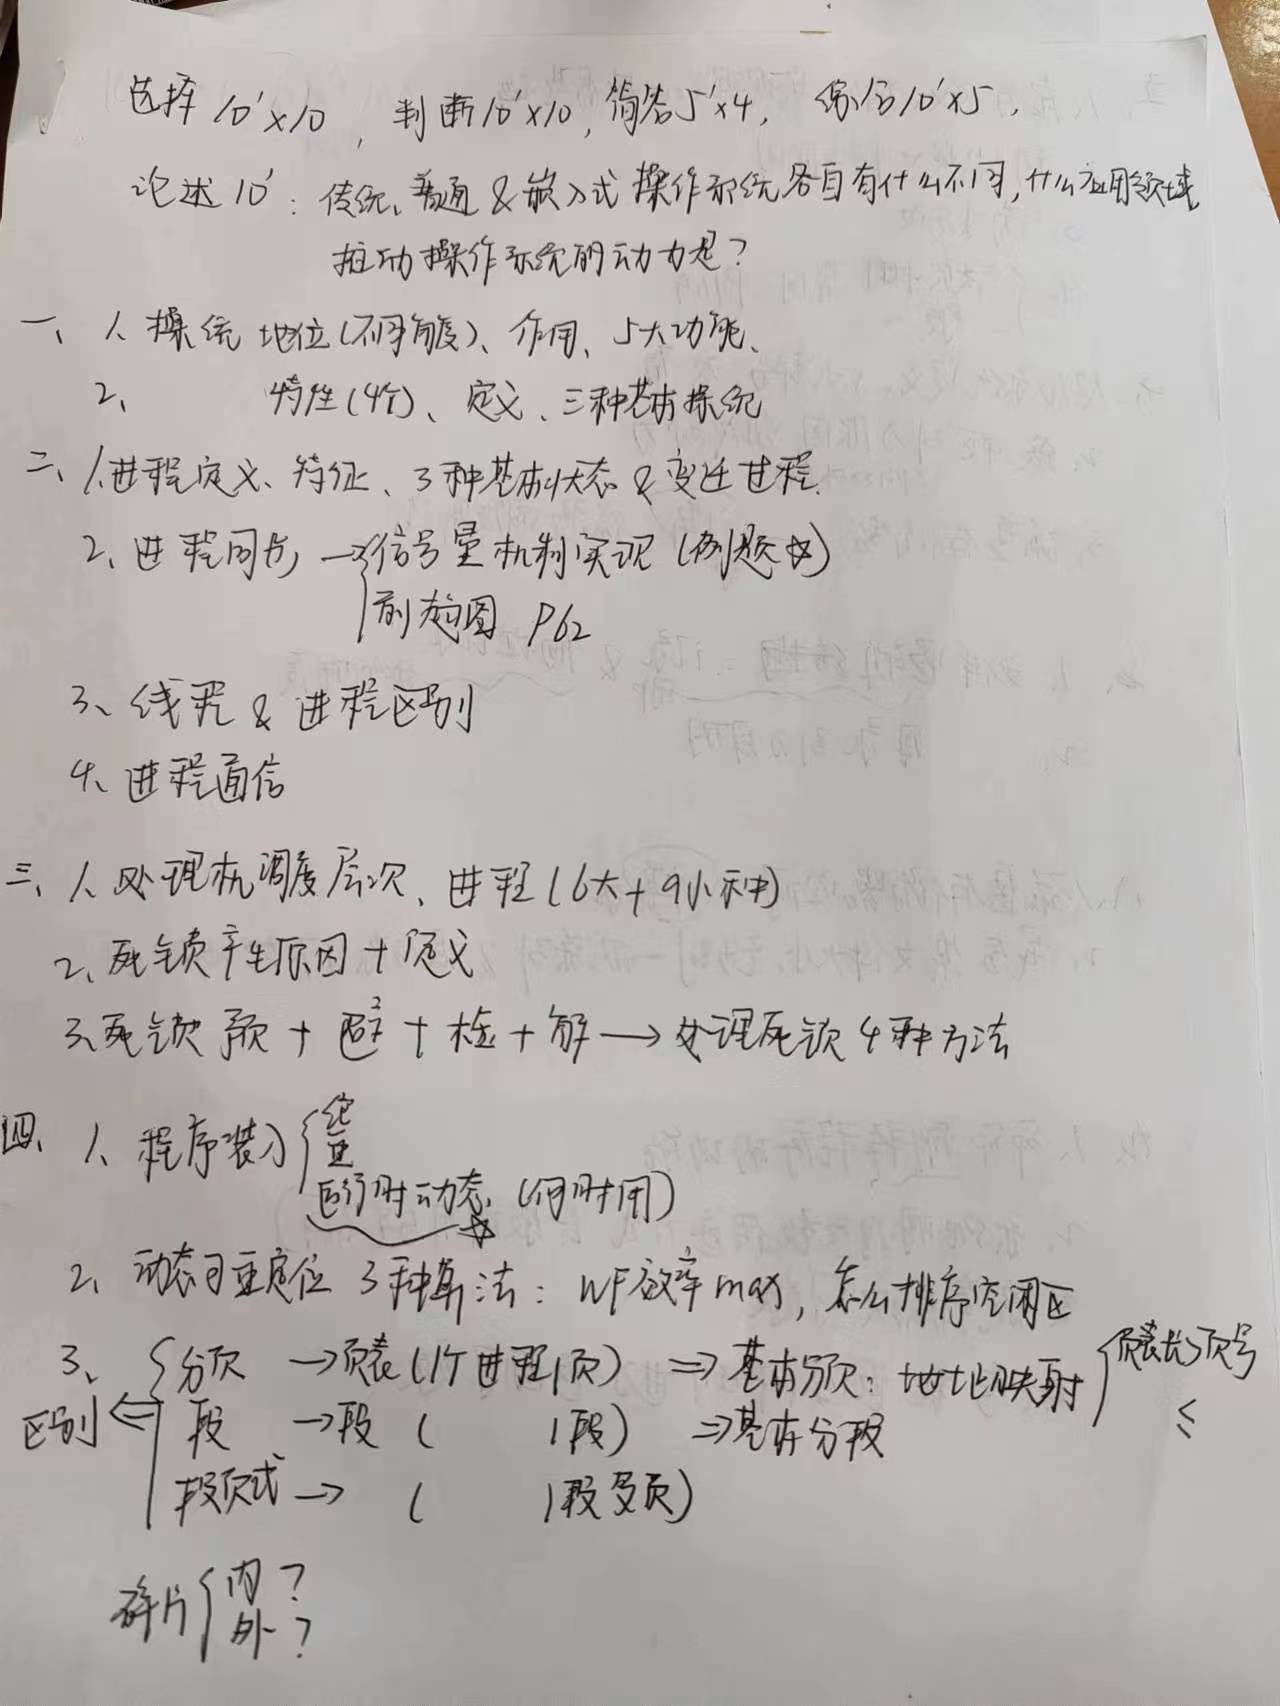 选择 10'×10，判断10'×10，简答5'×4，综合10'×5，
论述10'：传统、普通&嵌入式操作系统各自有什么不同，什么应用领域
推动操作系统的动力是？
一、1、操统 地位(不同角度)、作用、5大功能、
2、 特性(4个)、定义、三种基本操统
二、1、进程定义、特征、3种基本状态&变迁过程.
2、进程同步 →{信号量机制实现(例题书)
前趋图 P62
3、线程&进程区别
4、进程通信
三、1、处理机调度层次、进程(6大+9小种)
2、死锁产生原因+定义
3、死锁 预+避+检+解→处理死锁4种方法
四、1、程序装入{绝
重
运行时动态(何时用)
2、动态可重定位 3种算法：WF效率max，怎么排序空闲区
3、{分页 →页表(1个进程1页) ⇒基本分页：地址映射{页表长>页号
≤
区别⇐ 段 →段 ( 1段) ⇒基本分段
段页式→ ( 1段多页)
碎片{内？
外？